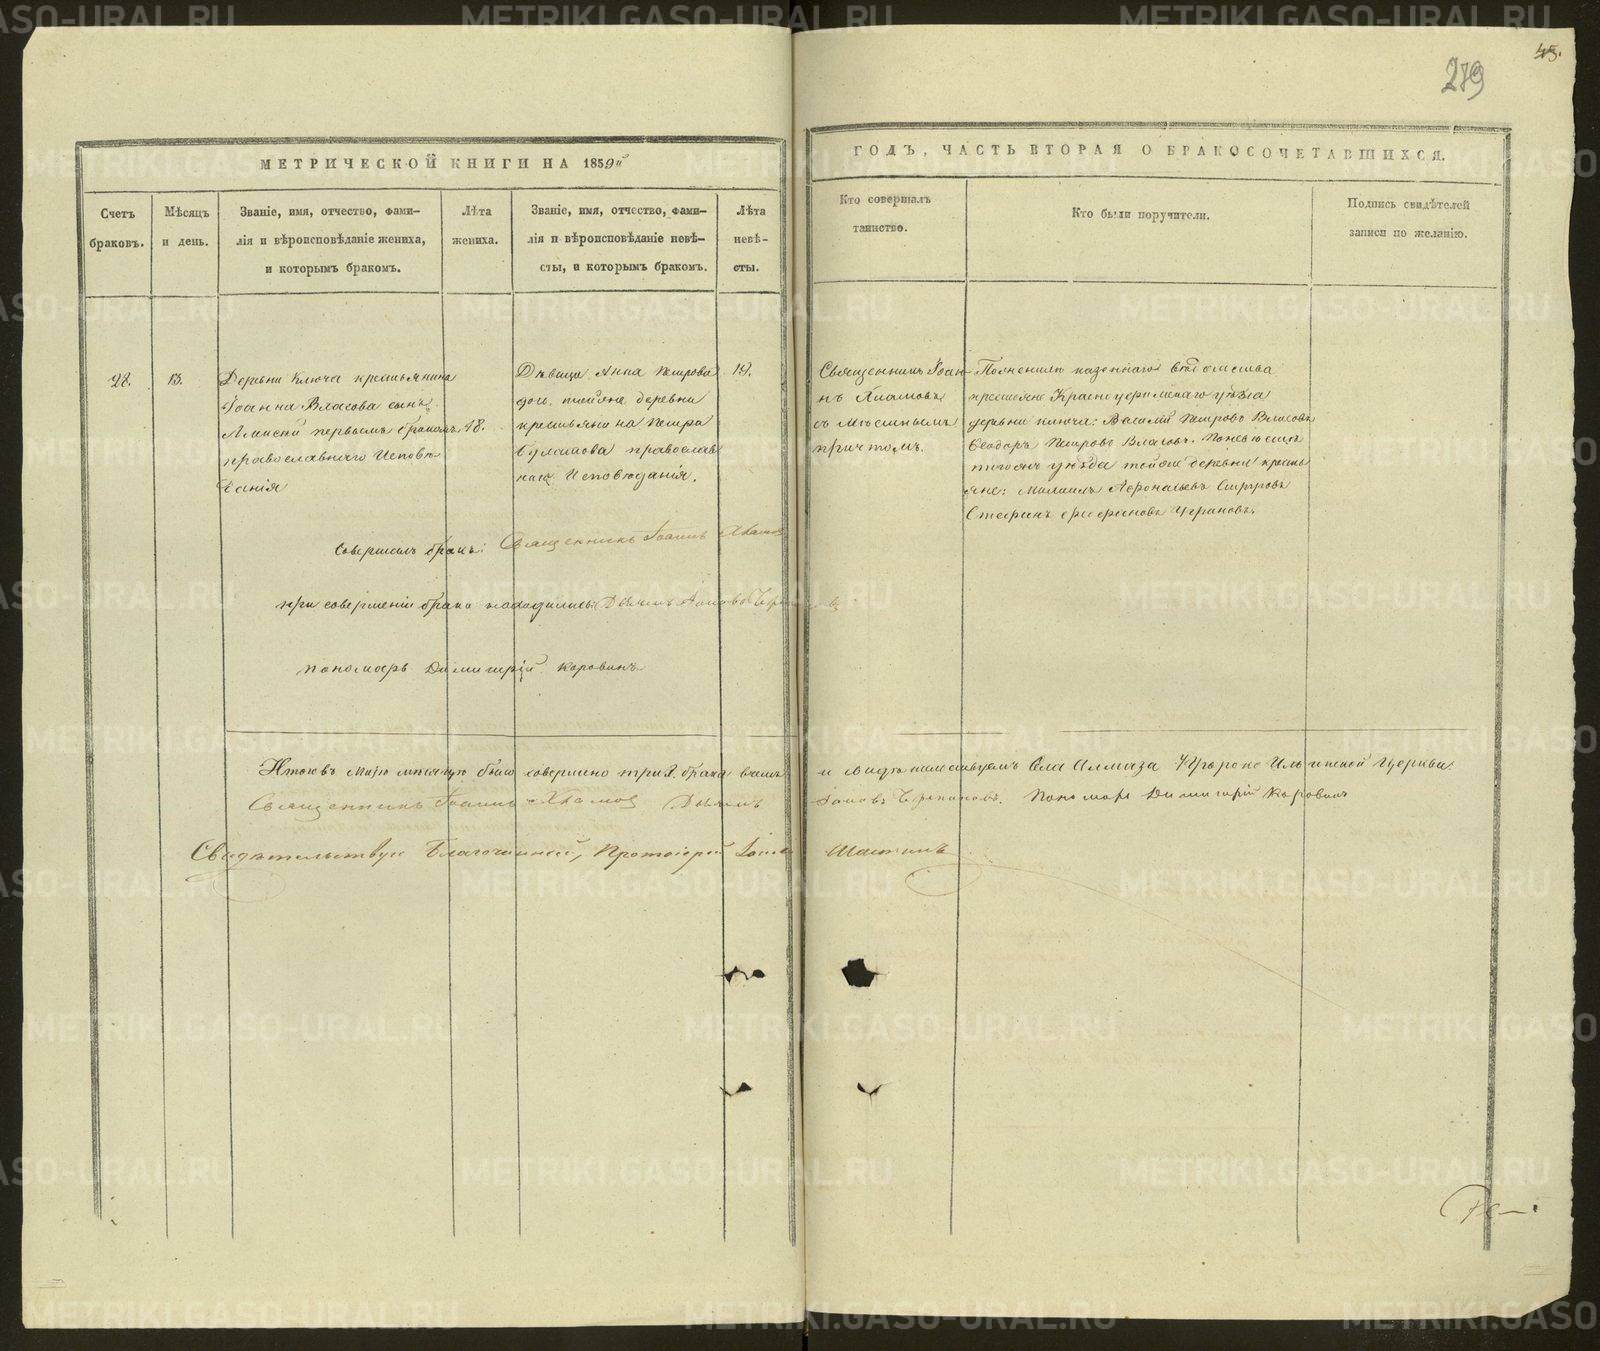 45.
279
МЕТРИЧЕСКОЙ КНИГИ НА 1859й
ГОДЪ, ЧАСТЬ ВТОРАЯ О БРАКОСОЧЕТАВШИХСЯ.
Счетъ
браковъ.
Мѣсяцъ
и день.
Званіе, имя, отчество, фами-
лія и вѣроисповѣданіе жениха,
и которымъ бракомъ.
Лѣта
жениха.
Званіе, имя, отчество, фами-
лія и вѣроисповѣданіе невѣ-
сты, и которымъ бракомъ.
Лѣта
невѣ-
сты.
Кто совершалъ
таинство.
Кто были поручители.
Подпись свидѣтелей
записи по желанію.
28.
13.
Деревни Ключа крестьянина
Іоанна Власова сынъ
первымъ бракомъ
православнаго Исповѣ
данія
18.
Дѣвица Анна Петрова
дочь, тойже деревни
крестьянина Петра
Булатова православ
наго Исповѣданія.
19.
Священникъ Іоан
нъ Хламовъ
съ Мѣстнымъ
причтомъ.
По женихѣ казеннаго вѣдомства
крестьяне Красноуфимскаго уѣзда
деревни Ключа: Василій Петровъ Власовъ
Ѳеодоръ Петровъ Власовъ. По невѣстѣ
тогожъ уѣзда тойже деревни кресть
яне: Михаилъ Аѳонасьевъ
Стефанъ
Совершалъ бракъ: Священникъ Іоаннъ Хламовъ
при совершеніи брака находились: Дьячекъ
пономарь Димитрій Коровинъ
Итого въ Маію мѣсяцѣ было совершено три 3. брака
Села Ильинской Церкви
Священникъ Іоаннъ Хламовъ Дьячекъ
Пономарь Димитрій Коровинъ
Свидѣтельствую Благочинный, Протоіерей
METRIKI.GASO-URAL.RU